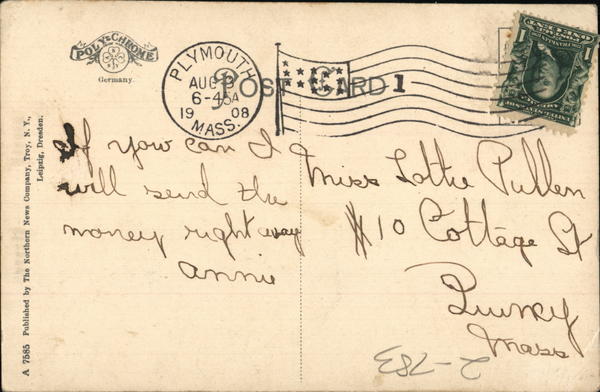 POLY-CHROME
Germany.
PLYMOUTH
AUG
6-45A
1908
MASS.
POST CARD
1
If you can I
will send the
money right away
Annie
Miss Lottie Pullen
#10 Cottage St
Quincy
Mass
2-783
A 7585 Published by The Northern News Company, Troy, N. Y.,
Leipzig, Dresden.